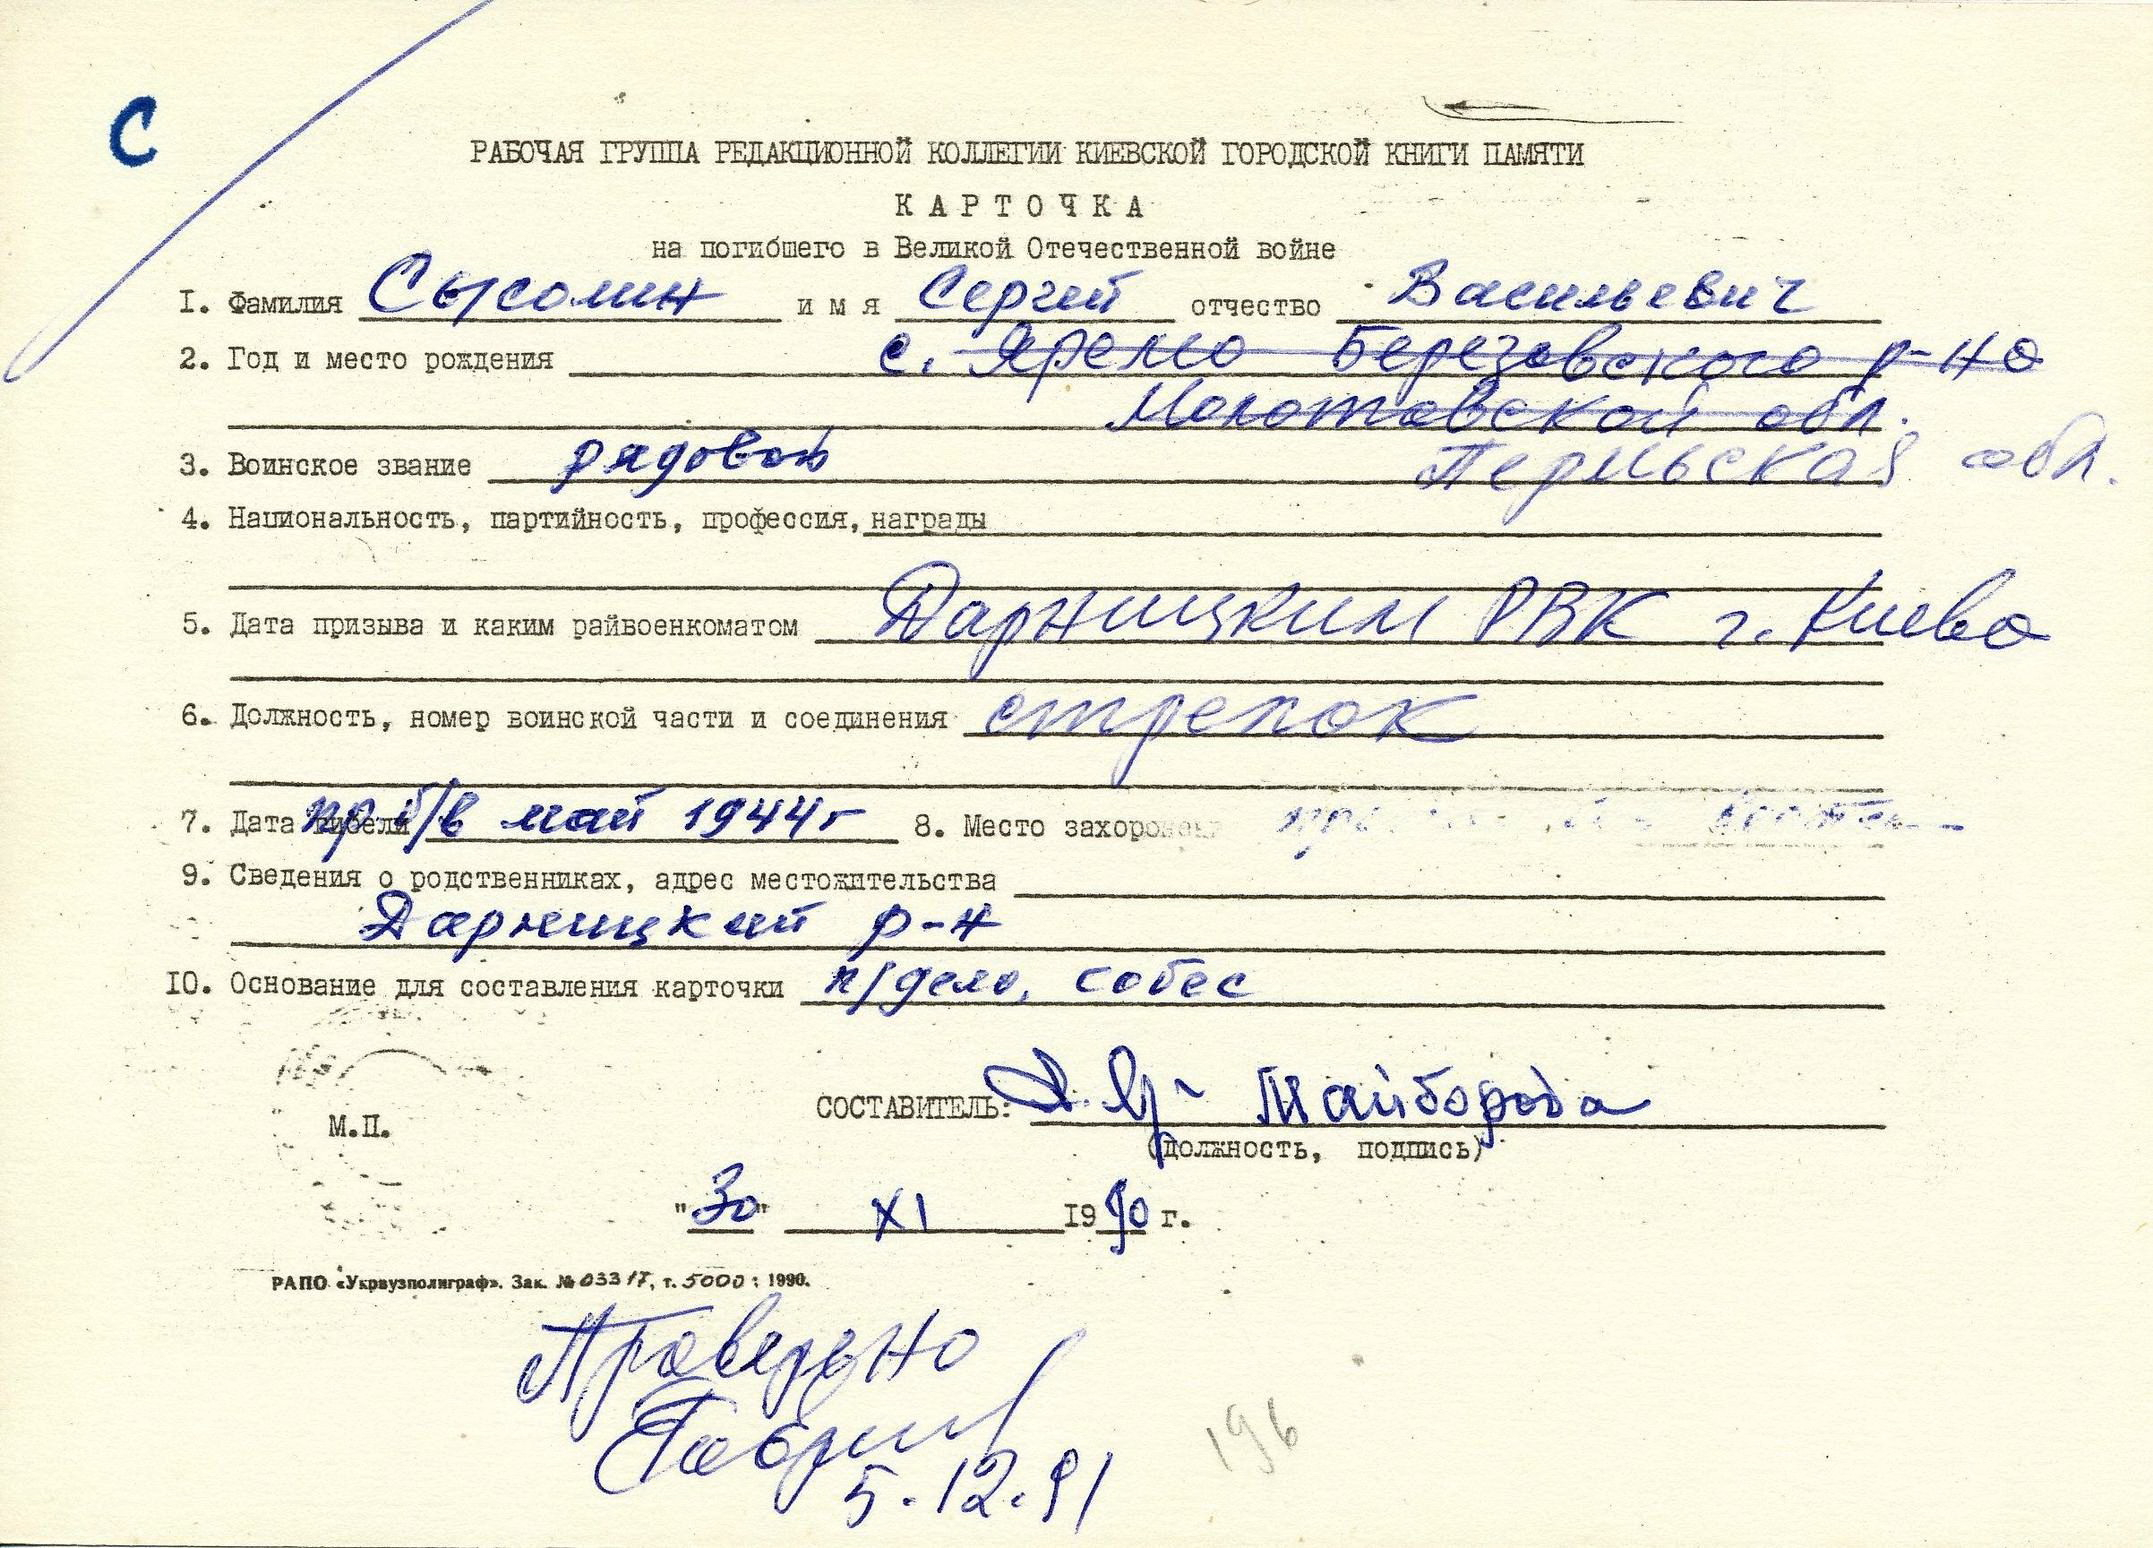 С
РАБОЧАЯ ГРУППА РЕДАКЦИОННОЙ КОЛЛЕГИИ КИЕВСКОЙ ГОРОДСКОЙ КНИГИ ПАМЯТИ
КАРТОЧКА
на погибшего в Великой Отечественной войне
I. Фамилия Сысолин имя Сергей отчество Васильевич
2. Год и место рождения с. Яремо Березовского р-на
Молотовской обл.
3. Воинское звание рядовой Пермьская обл.
4. Национальность, партийность, профессия, награды
5. Дата призыва и каким райвоенкоматом Дарницким РВК г. Киева
6. Должность, номер воинской части и соединения стрелок
7. Дата гибели пр. б/в май 1944 г 8. Место захоронения
9. Сведения о родственниках, адрес местожительства
Дарницкий р-н
IO. Основание для составления карточки п/дело, собес
СОСТАВИТЕЛЬ: Майборода
М.П.
(должность, подпись)
"30" XI 1990 г.
РАПО «Укрвузполиграф». Зак. № 03317, т. 5000 : 1990.
Проверено
5.12.91
196